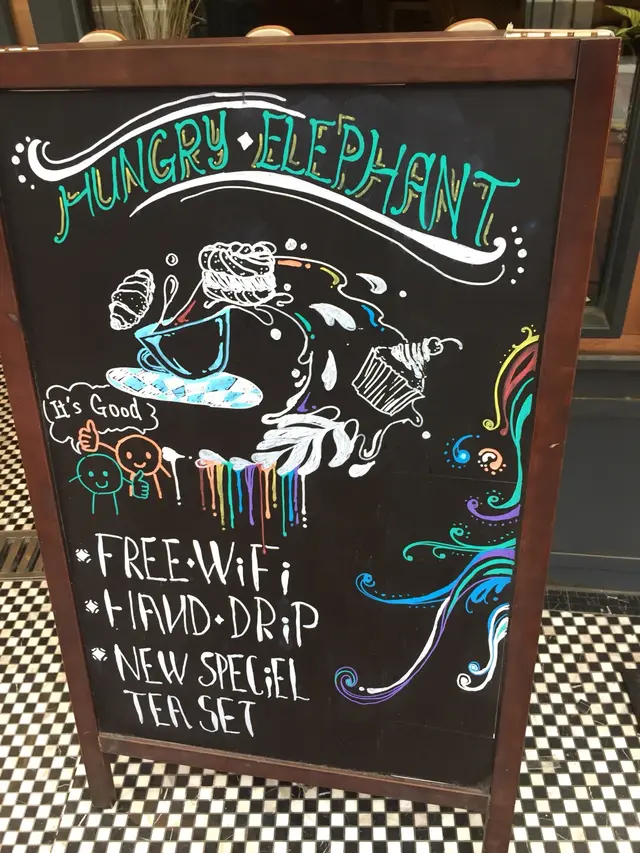 HUNGRY ELEPHANT
It's Good
FREE WiFi
HAND DRiP
NEW SPECiEL
TEA SET